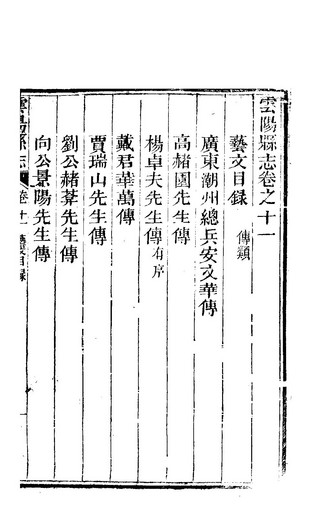 雲陽縣志卷之十一
藝文目録 傳類
廣東潮州總兵安文華傳
高赭園先生傳
楊卓夫先生傳 有序
戴君華萬傳
賈瑞山先生傳
劉公赭菴先生傳
向公景陽先生傳
雲陽縣志 卷十一 藝文目録 一